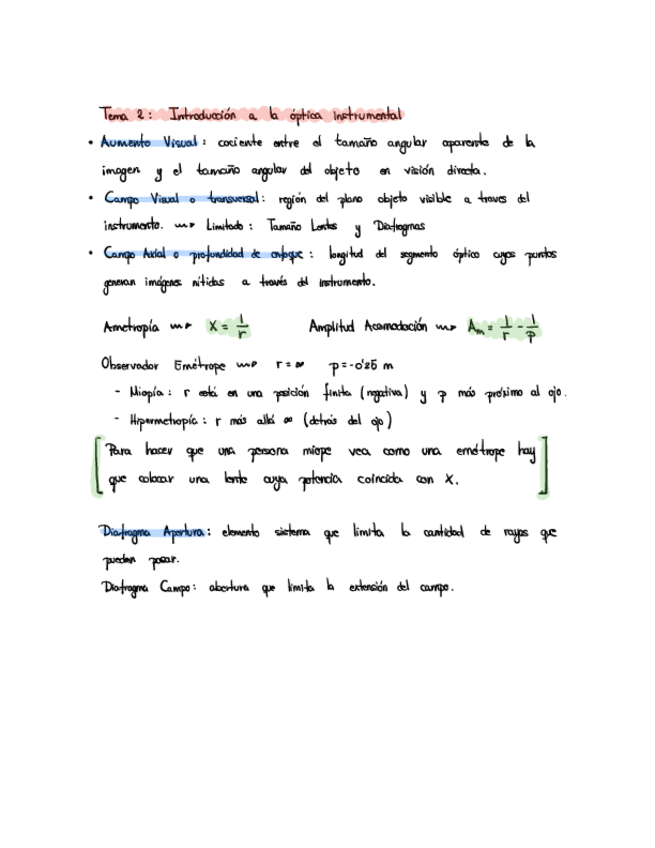 Tema 2: Introducción a la óptica instrumental
• Aumento Visual: cociente entre el tamaño angular aparente de la
imagen y el tamaño angular del objeto en visión directa.
• Campo Visual o transversal: región del plano objeto visible a traves del
instrumento. ⇝ Limitado: Tamaño Lentes y Diafragmas
• Campo Axial o profundidad de enfoque: longitud del segmento óptico cuyos puntos
generan imágenes nítidas a través del instrumento.
Ametropía ⇝ X = 1/r Amplitud Acomodación ⇝ Am = 1/r - 1/p
Observador Emétrope ⇝ r = ∞ p = -0'25 m
- Miopía: r está en una posición finita (negativa) y p más próximo al ojo.
- Hipermetropía: r más allá ∞ (detrás del ojo)
Para hacer que una persona miope vea como una emétrope hay
que colocar una lente cuya potencia coincida con X.
Diafragma Apertura: elemento sistema que limita la cantidad de rayos que
pueden pasar.
Diafragma Campo: abertura que limita la extensión del campo.